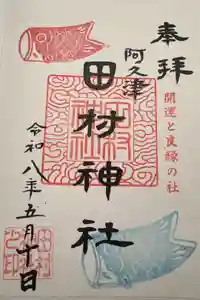 奉拝
開運と良縁の社
阿久津
田村神社
令和八年五月十日